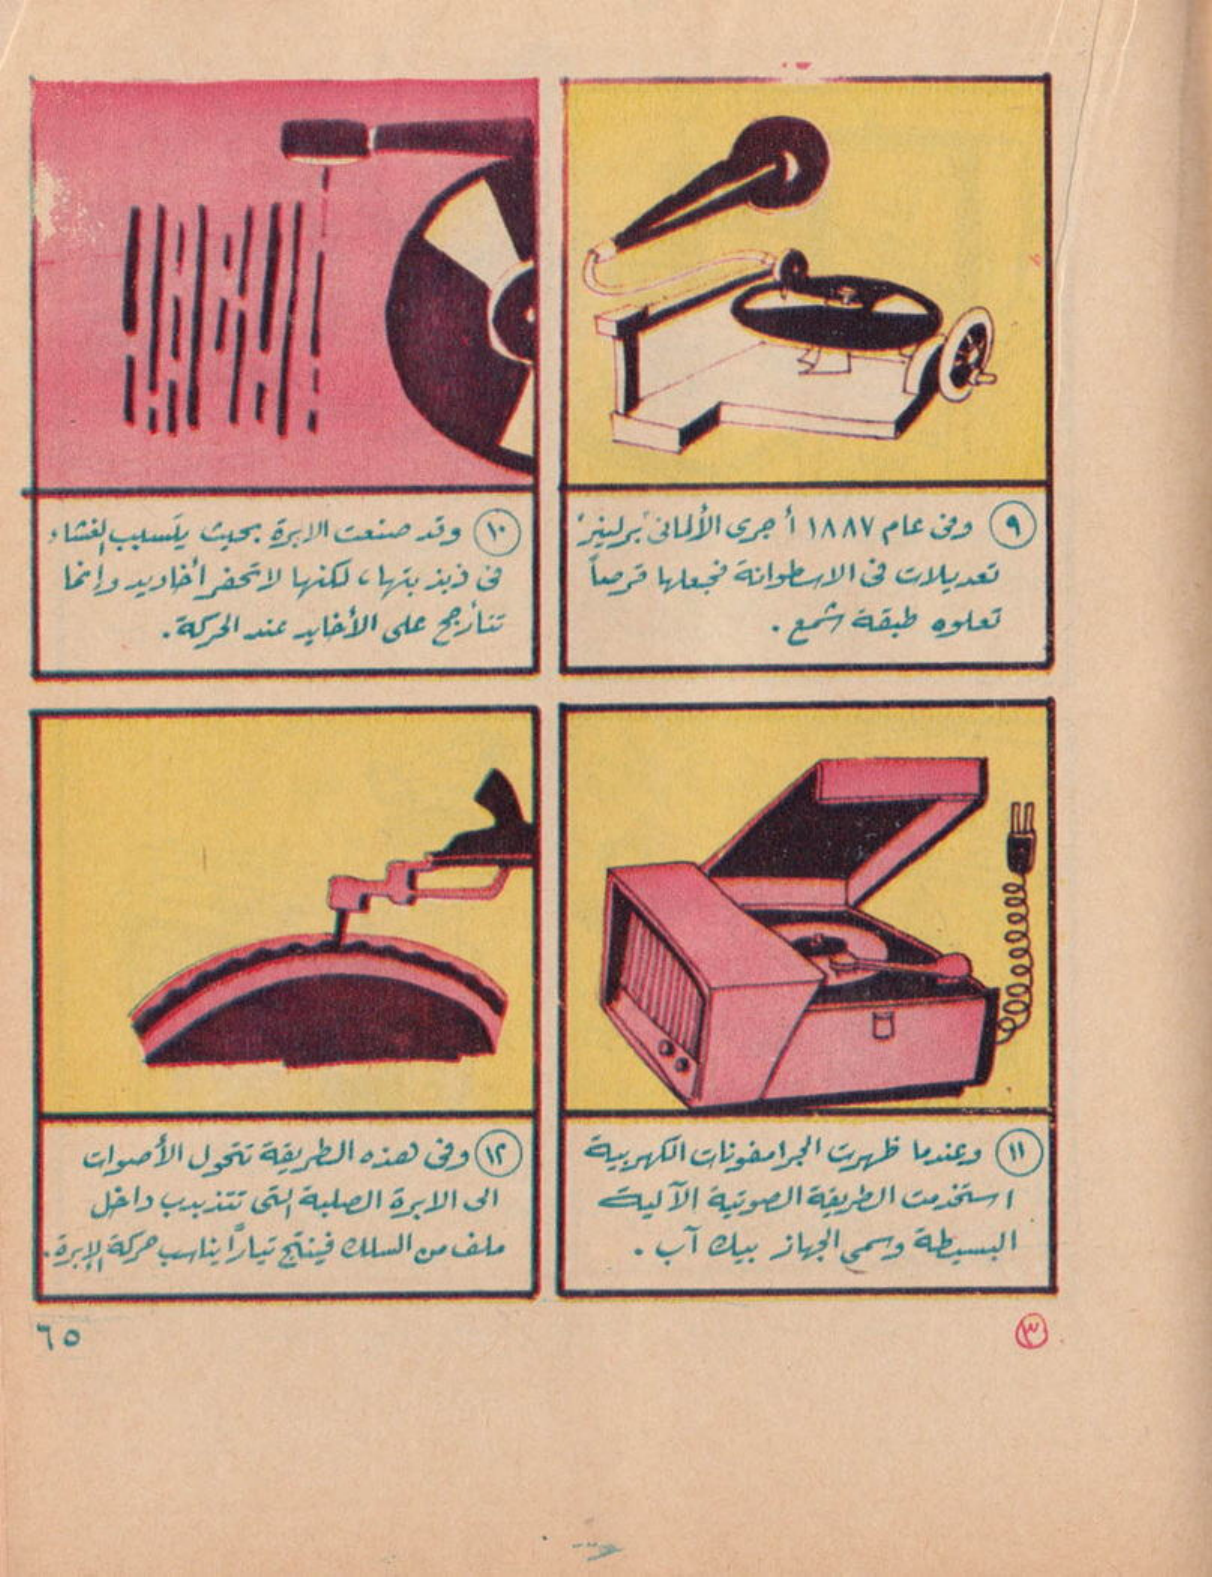 ٩ وفى عام ١٨٨٧ أجرى الألمانى "برلينر"
تعديلات فى الاسطوانة فجعلها قرصاً
تعلوه طبقة شمع .
١٠ وقد صنعت الابرة بحيث يتسبب الغشاء
فى ذبذبتها، لكنها لا تحفر أخاديد وإنما
تتأرجح على الأخايد عند الحركة .
١١ وعندما ظهرت الجرامفونات الكهربية
استخدمت الطريقة الصوتية الآلية
البسيطة وسمى الجهاز بيك آب .
١٢ وفى هذه الطريقة تتحول الأصوات
الى الابرة الصلبة التى تتذبدب داخل
ملف من السلك فينتج تياراً يناسب حركة الإبرة .
٣
٦٥